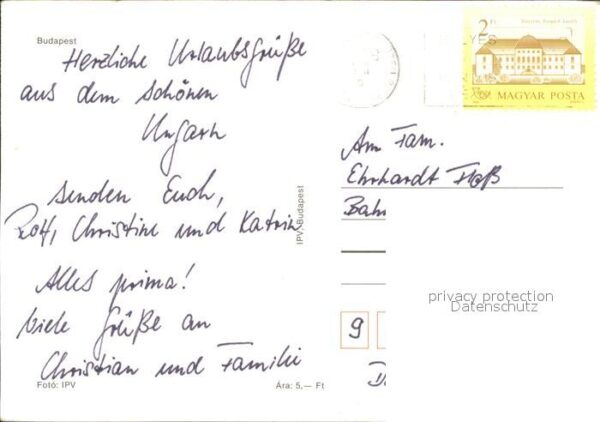 Budapest
Herzliche Urlaubsgrüße
aus dem schönen
Ungarn
senden Euch,
Rolf, Christine und Katrin
Alles prima!
Viele Grüße an
Christian und Familie
Fotó: IPV
Ára: 5,— Ft
IPV, Budapest
2 Ft
MAGYAR POSTA
An Fam.
Ehrhardt Floß
Bahn
9
D
privacy protection
Datenschutz